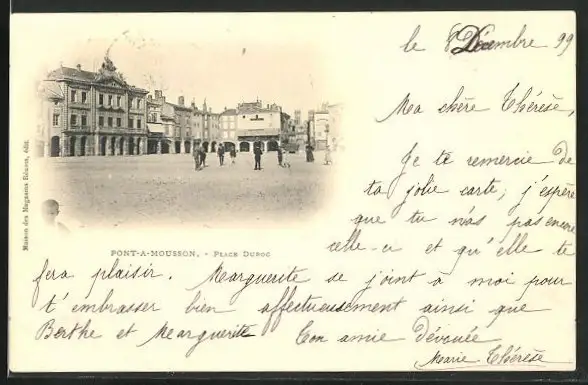 le 8 Décembre 99
Ma chère Thérèse,
Je te remercie de
ta jolie carte, j'espère
que tu n'as pas encore
celle-ci et qu'elle te
fera plaisir. Marguerite se joint à moi pour
t'embrasser bien affectueusement ainsi que
Berthe et Marguerite Ton amie dévouée
Marie Thérèse
PONT-A-MOUSSON. - PLACE DUROC
Maison des Magasins Réunis, édit.